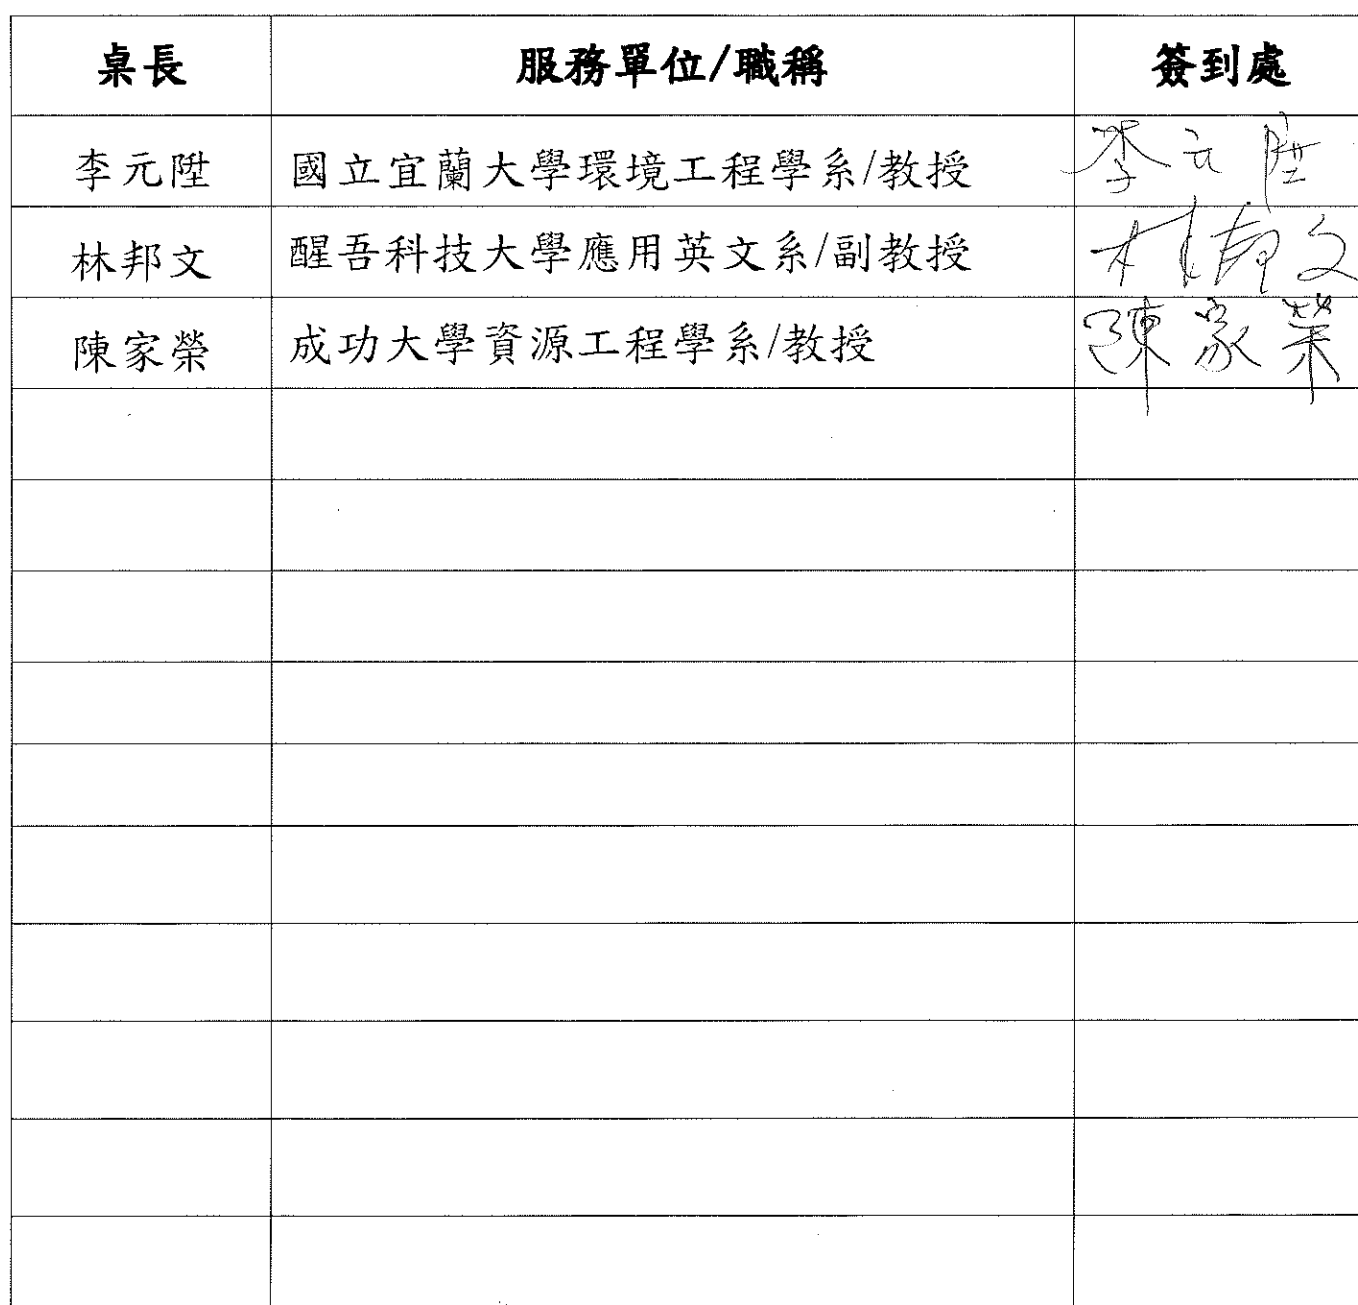 桌長 服務單位/職稱 簽到處
李元陞 國立宜蘭大學環境工程學系/教授 李元陞
林邦文 醒吾科技大學應用英文系/副教授 林邦文
陳家榮 成功大學資源工程學系/教授 陳家榮